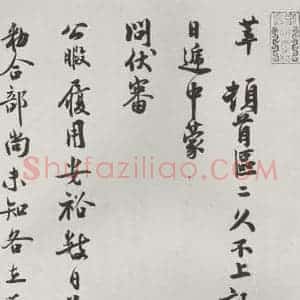 莘 頓首區二久不上記
日遞中蒙
問伏審
公暇履用光裕錢日
勑合部尚未知各在
Shufaziliao.com